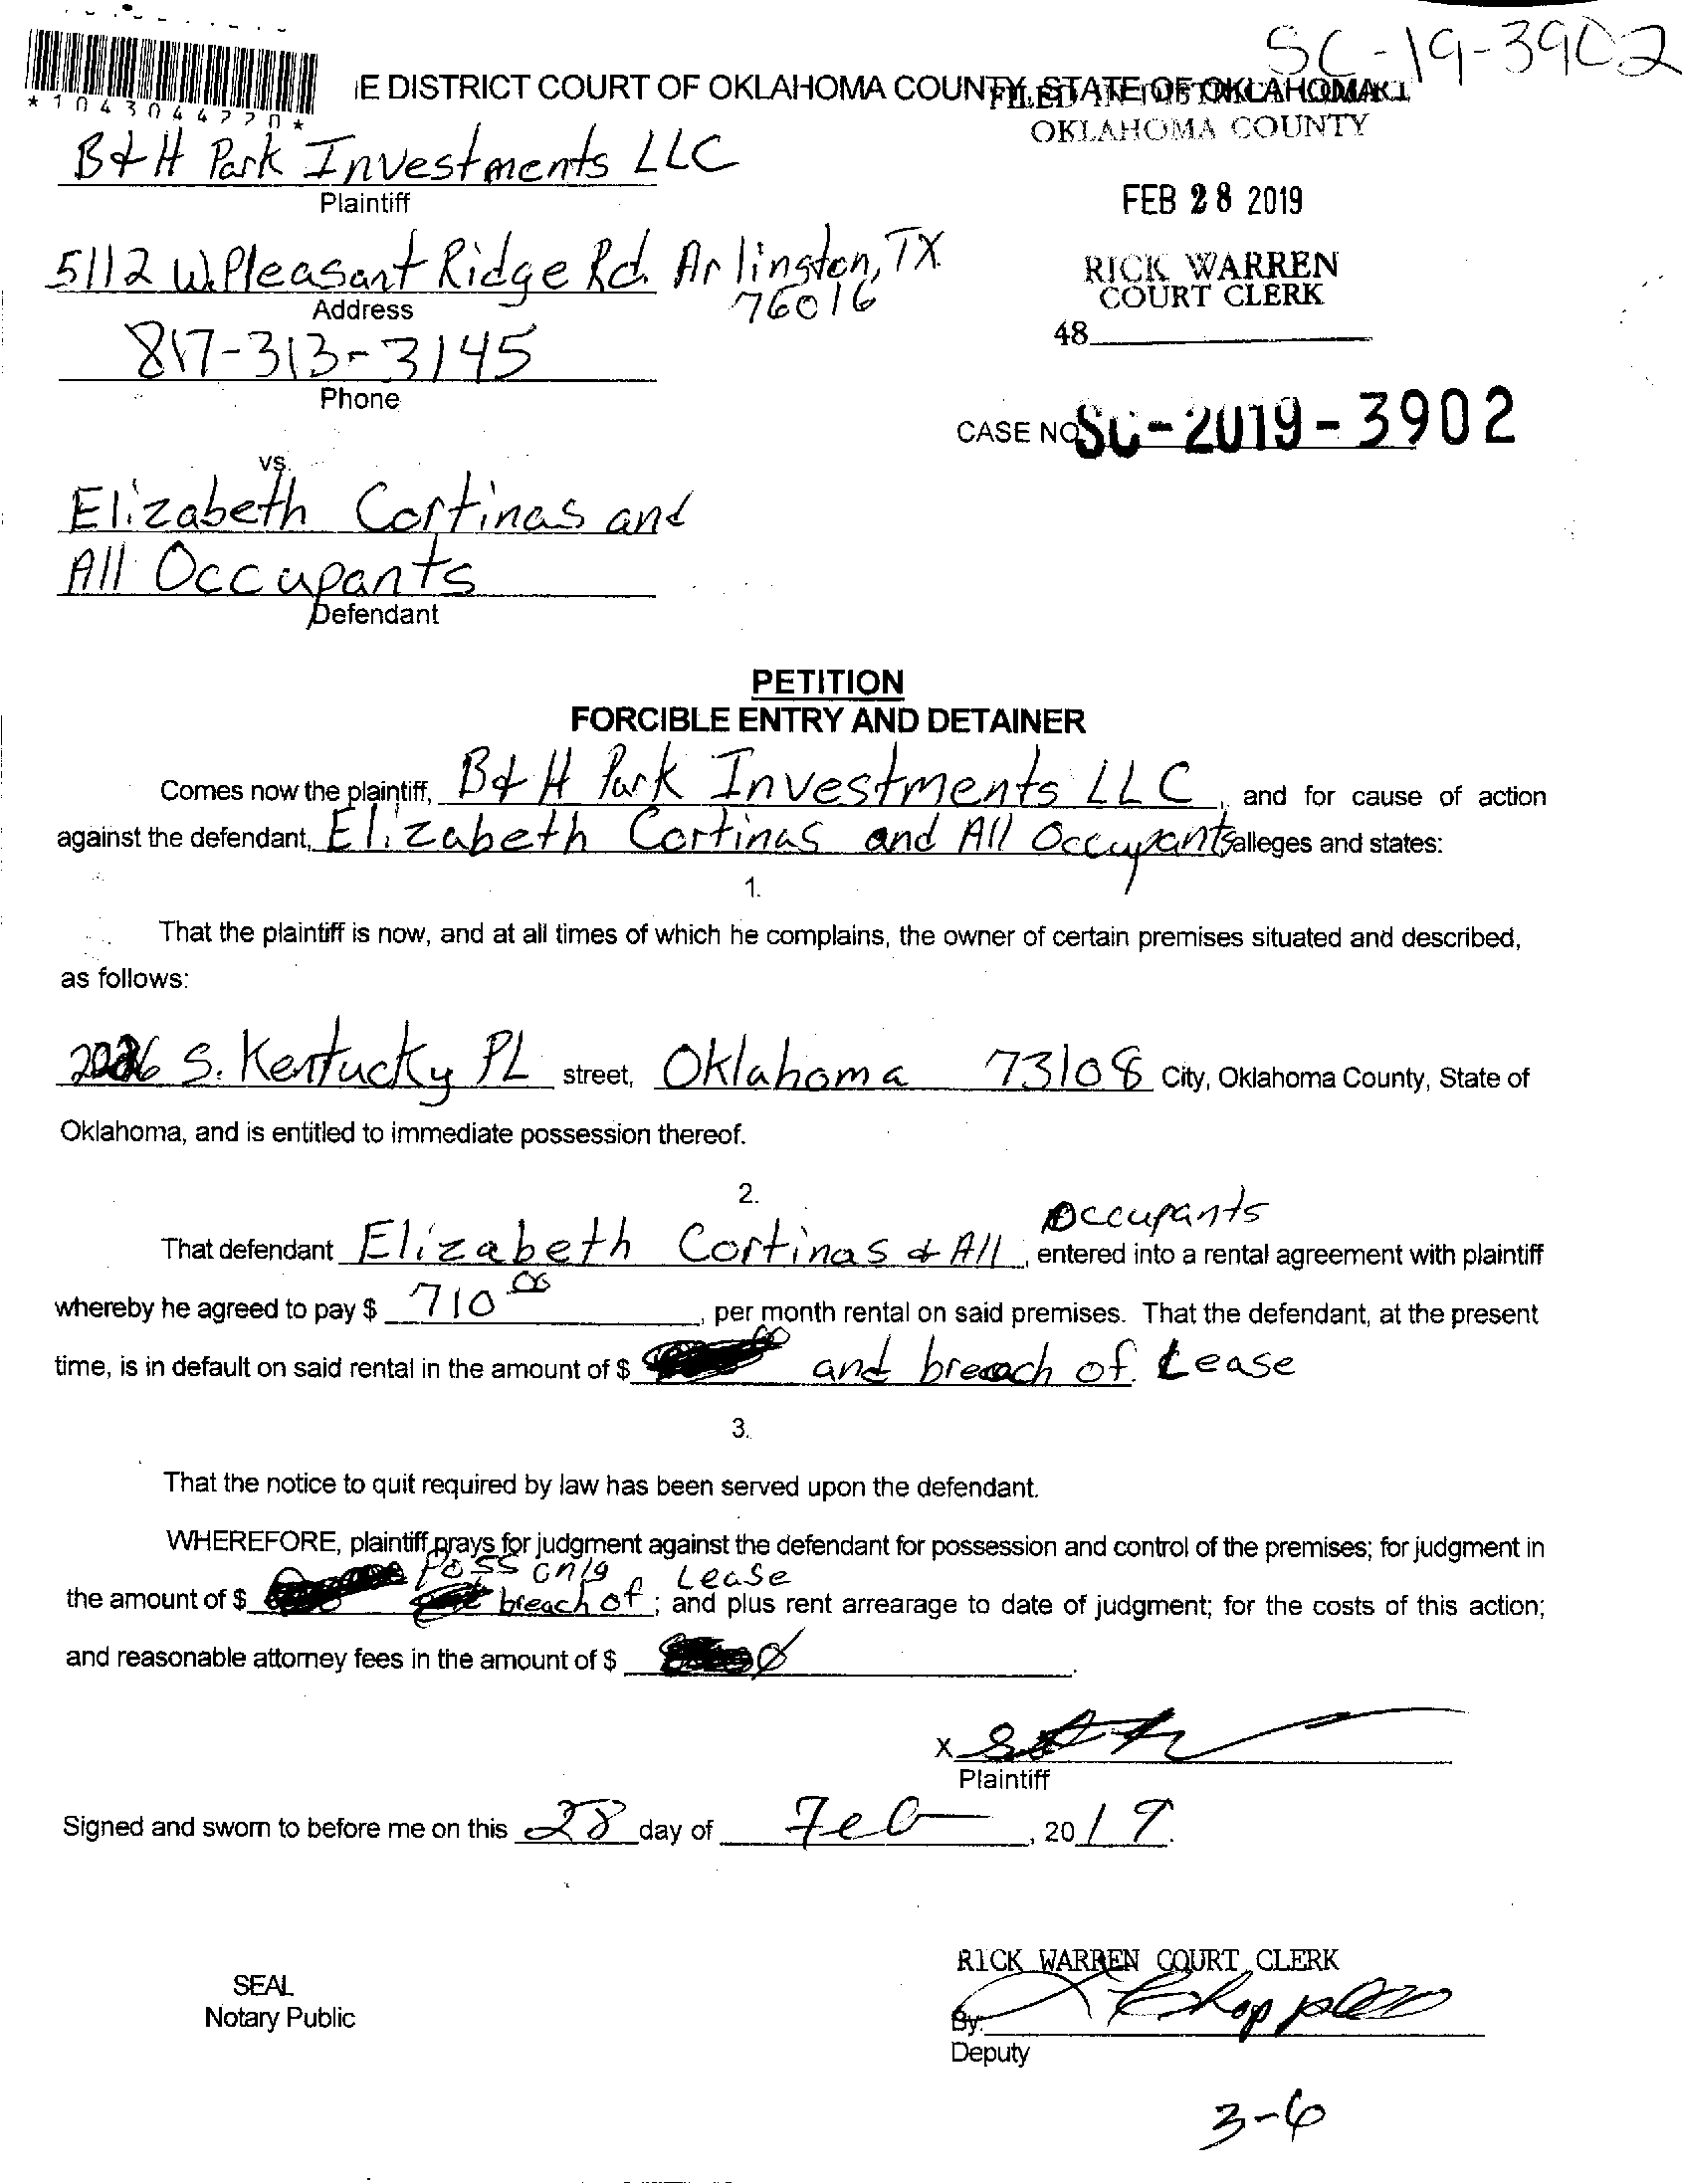 SC-19-3902
*1043044770*
IE DISTRICT COURT OF OKLAHOMA COUNTY, STATE OF OKLAHOMA
FILED IN DISTRICT COURT
OKLAHOMA COUNTY
B&H Park Investments LLC
Plaintiff
FEB 28 2019
5112 W. Pleasant Ridge Rd. Arlington, TX
76016
Address
RICK WARREN
COURT CLERK
48
817-313-3145
Phone
CASE NO SC-2019-3902
vs.
Elizabeth Cortinas and
All Occupants
Defendant
PETITION
FORCIBLE ENTRY AND DETAINER
Comes now the plaintiff, B&H Park Investments LLC, and for cause of action
against the defendant, Elizabeth Cortinas and All Occupants alleges and states:
1.
That the plaintiff is now, and at all times of which he complains, the owner of certain premises situated and described,
as follows:
S. Kentucky PL street, Oklahoma 73108 City, Oklahoma County, State of
Oklahoma, and is entitled to immediate possession thereof.
2.
Occupants
That defendant Elizabeth Cortinas & All, entered into a rental agreement with plaintiff
whereby he agreed to pay $ 710 00, per month rental on said premises. That the defendant, at the present
time, is in default on said rental in the amount of $ and breach of Lease
3.
That the notice to quit required by law has been served upon the defendant.
WHEREFORE, plaintiff prays for judgment against the defendant for possession and control of the premises; for judgment in
Poss only Lease
the amount of $ breach of; and plus rent arrearage to date of judgment; for the costs of this action;
and reasonable attorney fees in the amount of $ Ø.
X
Plaintiff
Signed and sworn to before me on this 28 day of Feb, 2019.
RICK WARREN COURT CLERK
SEAL
Notary Public
By:
Deputy
3-6